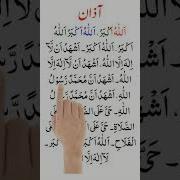 آذان
اَللّٰهُ اَكْبَرُ۔ اَللّٰهُ اَكْبَرُ اَللّٰهُ
اَكْبَرُ۔ اَللّٰهُ اَكْبَرُ۔ اَشْهَدُ اَنْ لَّآ
اِلٰهَ اِلَّا اللّٰهُ۔ اَشْهَدُ اَنْ لَّآ اِلٰهَ اِلَّا
اللّٰهُ۔ اَشْهَدُ اَنَّ مُحَمَّدً رَّسُوْلُ
اللّٰهِ۔ اَشْهَدُ اَنَّ مُحَمَّدً رَّسُوْلُ
اللّٰهِ۔ حَیَّ عَلَی
الصَّلَاةِ۔ حَیَّ عَلَی
الْفَلَاحِ۔ حَیَّ
اَكْبَرُ۔
لَآ اِلٰهَ اِلَّا